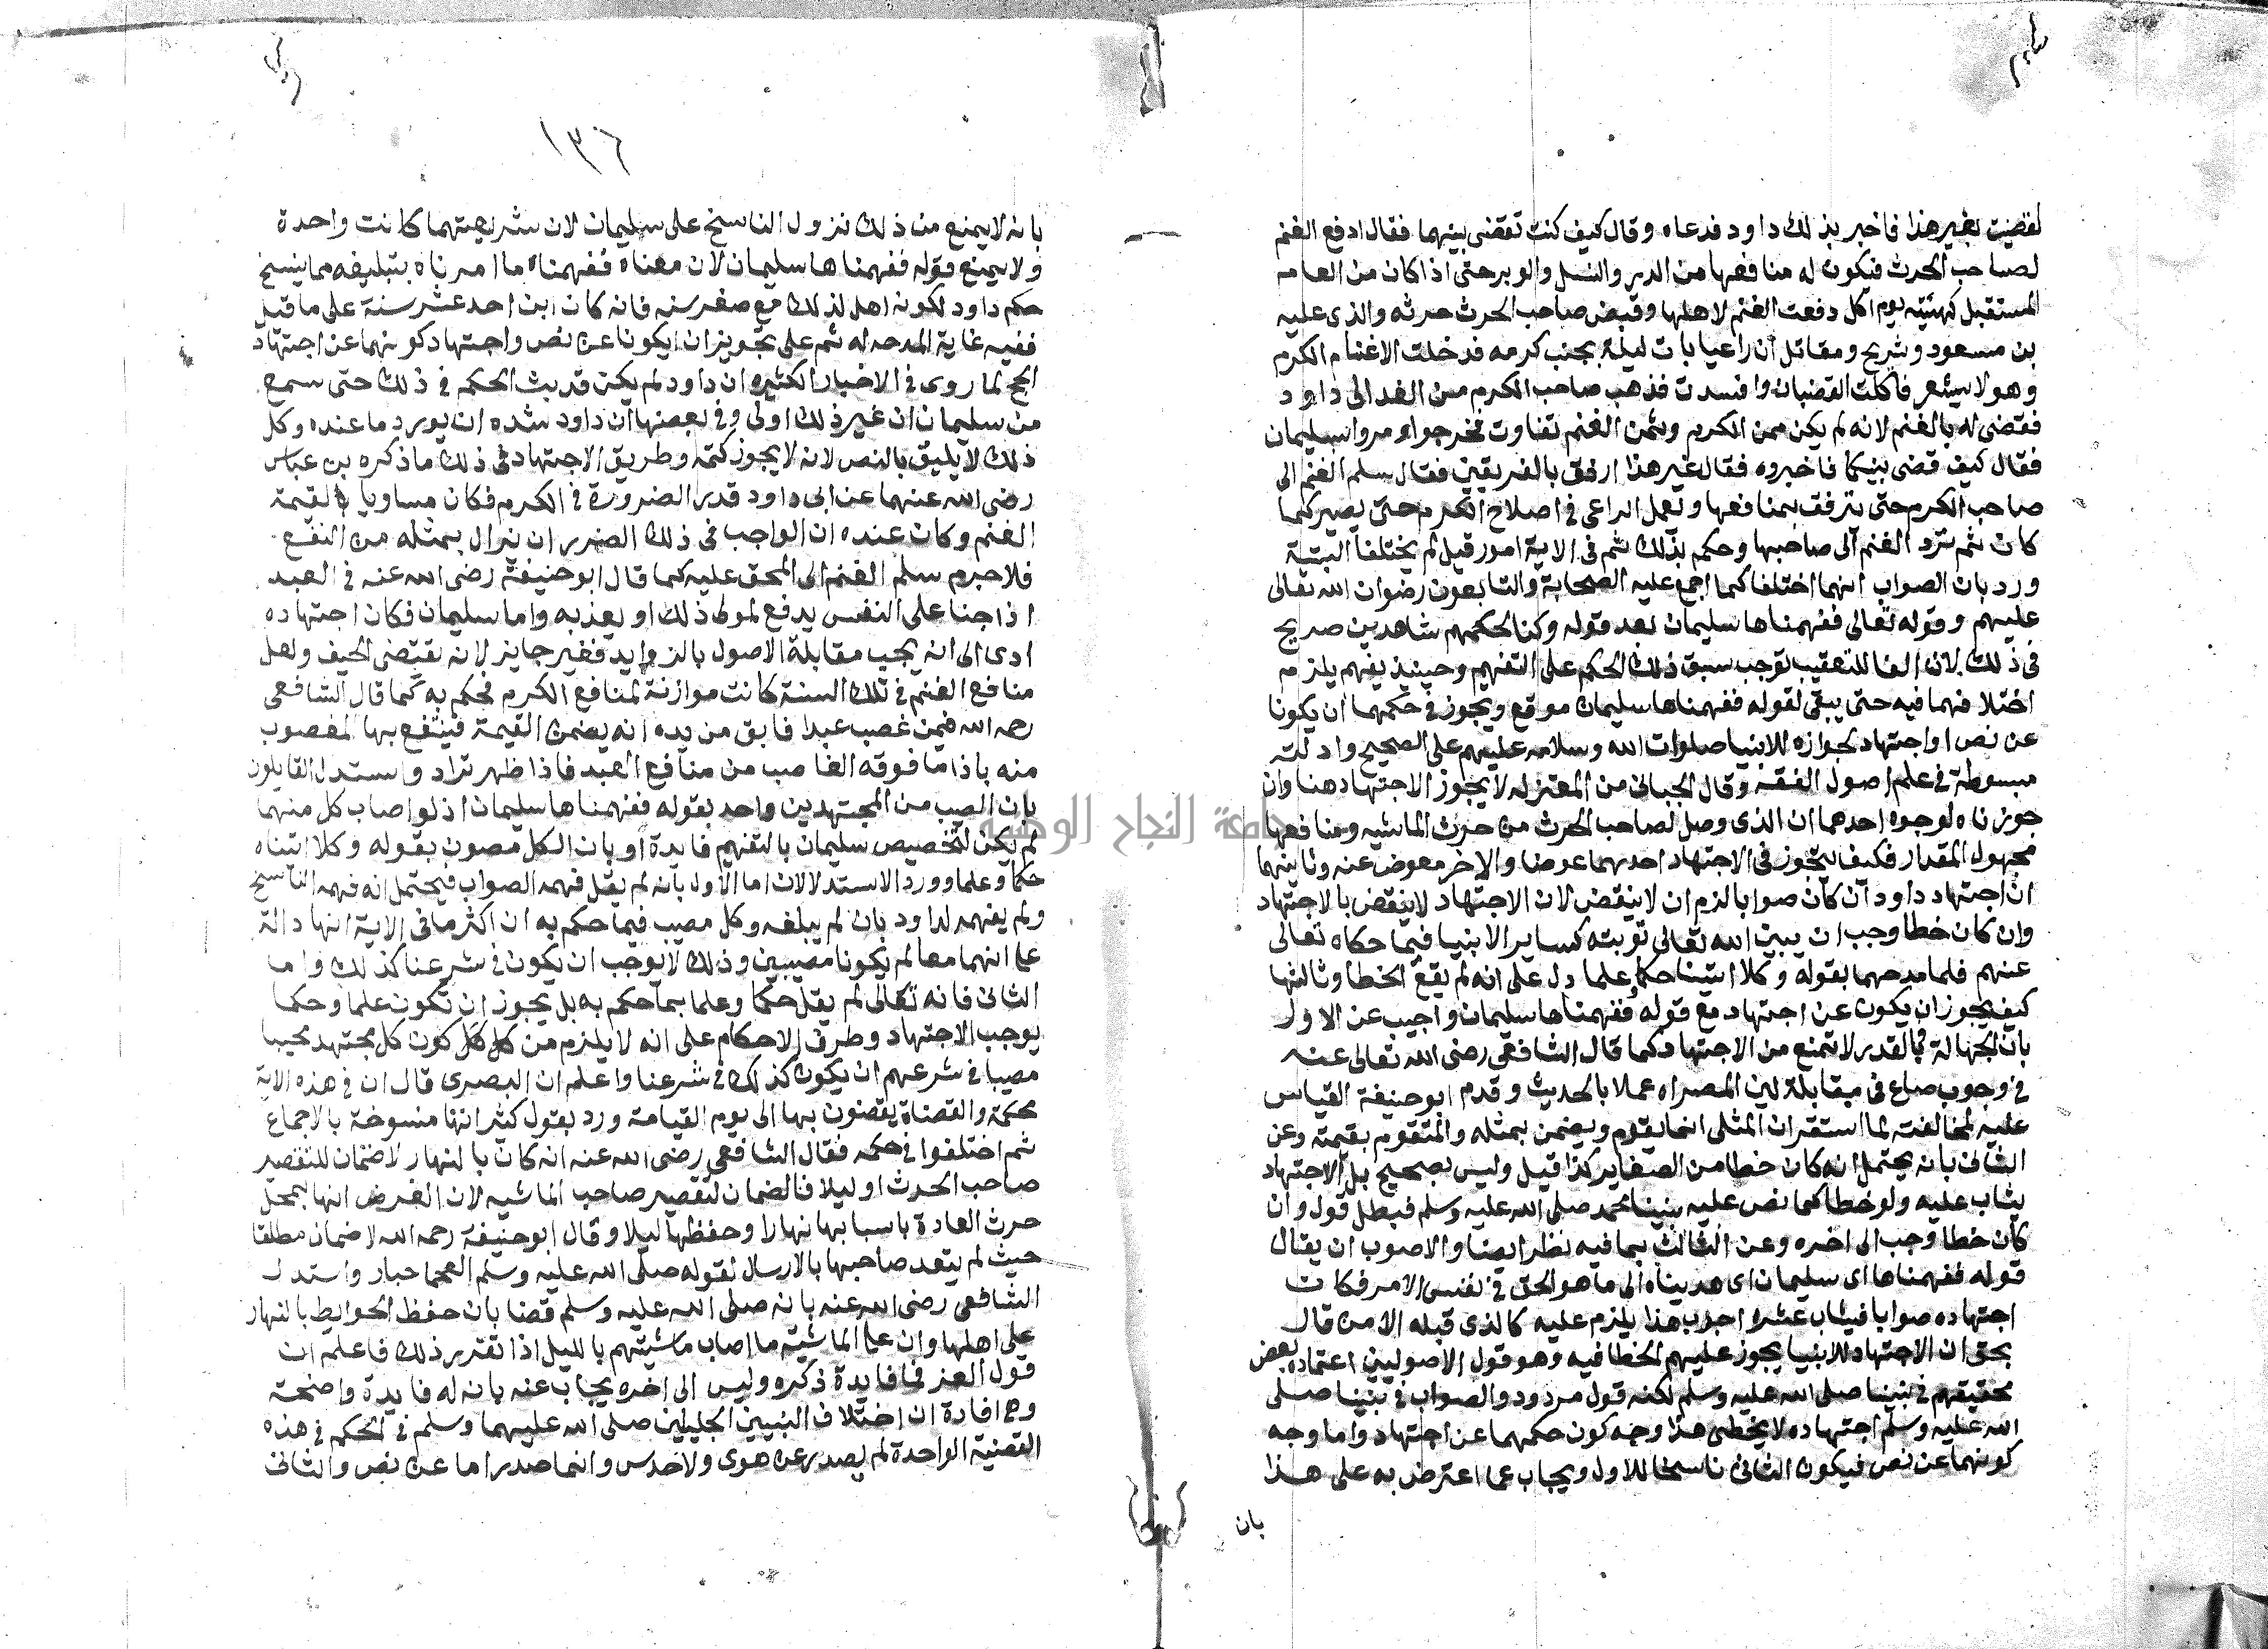 لقضيت بغير هذا فاخبر بذلك داود فدعاه وقال كيف كنت تقضى بينهما فقال ادفع الغنم
لصاحب الحرث فيكون له منافعها من الدر والنسل والوبر حتى اذا كان من العام
المستقبل كهيئته يوم اكل دفعت الغنم لاهلها وقبض صاحب الحرث حرثه والذى عليه
بن مسعود وشريح ومقاتل ان راعيا بات ليلة بجنب كرمه فدخلت الاغنام الكرم
وهو لا يشعر فاكلت القضبان وافسدت فذهب صاحب الكرم من الغد الى داود
فقضى له بالغنم لانه لم يكن ثمن الكرم وثمن الغنم تفاوت فخرجوا ومروا بسليمان
فقال كيف قضى بينكما فاخبروه فقال غير هذا ارفق بالفريقين فقال سلم الغنم الى
صاحب الكرم حتى يترفق بمنافعها ويعمل الراعى فى اصلاح الكرم حتى يصير كما
كان ثم ترد الغنم الى صاحبها وحكم بذلك ثم فى الاية امور قيل لم يختلفا البتة
ورد بان الصواب انهما اختلفا كما اجمع عليه الصحابة والتابعون رضوان الله تعالى
عليهم وقوله تعالى ففهمناها سليمان بعد قوله وكنا لحكمهم شاهدين صريح
فى ذلك لان الفا للتعقيب توجب سبق ذلك الحكم على التفهيم وحينيذ يفهم يلزم
اختلافهما فيه حتى يبقى لقوله ففهمناها سليمان موقع ويجوز فى حكمهما ان يكونا
عن نص او اجتهاد لجوازه للانبيا صلوات الله وسلامه عليهم على الصحيح وادلته
مبسوطة فى علم اصول الفقه وقال الجبائى من المعتزله لا يجوز الاجتهاد هنا وان
جوزناه لوجوه احدهما ان الذى وصل لصاحب الحرث من حرث الماشيه ومنافعها
مجهول المقدار فكيف يتجوز فى الاجتهاد احدهما عوضا والاخر معوض عنه وثانيهما
ان اجتهاد داود ان كان صوابا لزم ان لا ينقض لان الاجتهاد لا ينقض بالاجتهاد
وان كان خطا وجب ان يبين الله تعالى توبته كساير الانبيا فيما حكاه تعالى
عنهم فلما مدحهما بقوله وكلا اتينا حكما وعلما دل على انه لم يقع الخطا وثالثها
كيف يجوز ان يكون عن اجتهاد مع قوله ففهمناها سليمان واجيب عن الاول
بان الجهالة بالقدر لا تمنع من الاجتهاد كما قال الشافعى رضى الله تعالى عنه
فى وجوب صاع فى مقابلة لبن المصراه عملا بالحديث وقدم ابو حنيفة القياس
عليه لمخالفته لما استقر ان المثلى انما يقوم ويضمن بمثله والمتقوم بقيمته وعن
الثانى بانه يحتمل انه كان خطا من الصغاير كذا قيل وليس بصحيح بل الاجتهاد
يثاب عليه ولو خطا كما نص عليه نبينا محمد صلى الله عليه وسلم فبطل قول وان
كان خطا وجب الى اخره وعن الثالث بما فيه نظر ايضا والاصوب ان يقال
قوله ففهمناها اى سليمان اى هديناه الى ما هو الحق فى نفس الامر فكان
اجتهاده صوابا فيثاب عشرة اجور هذا يلزم عليه كالذى قبله الا من قال
بحق ان الاجتهاد للانبيا يجوز عليهم الخطا فيه وهو قول الاصوليين اعتماده بعض
محقيقهم فى نبينا صلى الله عليه وسلم لكنه قول مردود والصواب فى نبينا صلى
الله عليه وسلم اجتهاده لا يخطى هذا وجه كون حكمهما عن اجتهاد واما وجه
كونهما عن نص فيكون الثانى ناسخا للاول ويجاب عما اعترض به على هذا
بان
١٣٦
بانه لا يمنع من ذلك نزول الناسخ على سليمان لان شريعتهما كانت واحدة
ولا يمنع قوله ففهمناها سليمان لان معناه ففهمناه ما امرناه بتبليغه مما ينسخ
حكم داود لكونه اهل لذلك مع صغر سنه فانه كان ابن احد عشر سنة على ما قيل
ففيه غاية المدحه له ثم على تجويز ان يكونا عن نص واجتهاد كونهما عن اجتهاد
ارجح لما روى فى الاخبار الكثيره ان داود لم يكن قد بث الحكم فى ذلك حتى سمع
من سليمان ان غير ذلك اولى وفى بعضها ان داود شده ان يورد ما عنده وكل
ذلك لا يليق بالنص لانه لا يجوز كتمه وطريق الاجتهاد فى ذلك ما ذكره بن عباس
رضى الله عنهما عن ابى داود قدر الضرورة فى الكرم فكان مساويا لقيمة
الغنم وكان عنده ان الواجب فى ذلك الضرر ان يزال بمثله من النفع
فلا جرم سلم الغنم الى المحق عليه كما قال ابو حنيفة رضى الله عنه فى العبد
اذا جنا على النفس يدفع لمولى ذلك او يعذبه واما سليمان فكان اجتهاده
ادى الى انه يجب مقابلة الاصول بالزوايد فغير جايز لانه يقتضى الحيف ولعل
منافع الغنم فى تلك السنة كانت موازنة لمنافع الكرم فحكم به كما قال الشافعى
رحمه الله فيمن غصب عبدا فابق من يده انه يضمن القيمة فينتفع بها المغصوب
منه باذا ما فوقه الغاصب من منافع العبد فاذا ظهر ترادا واستدل القايلون
بان المصيب من المجتهدين واحد بقوله ففهمناها سليمان اذ لو اصاب كل منهما
لم يكن لتخصيص سليمان بالتفهيم فايدة او بان الكل مصوبون بقوله وكلا اتيناه
حكما وعلما وورد الاستدلالان اما الاول بانه لم يقل فهمه الصواب فيحتمل انه فهمه الناسخ
ولم يفهمه لداود بان لم يبلغه وكل مصيب فيما حكم به ان اكثر ما فى الاية انها دالة
على انهما معا لم يكونا مصيبين وذلك لا يوجب ان يكون فى شرعنا كذلك واما
الثانى فانه تعالى لم يقل حكما وعلما بما حكم به بل يجوز ان تكون علما وحكما
يوجب الاجتهاد وطرق الاحكام على انه لا يلزم من كل كل كون كل مجتهد مجيبا
مصيبا فى شرعهم ان يكون كذلك فى شرعنا واعلم ان البصرى قال ان فى هذه الاية
محكمة والقضاة يقضون بها الى يوم القيامة ورد بقول كثر انها منسوخة بالاجماع
ثم اختلفوا فى حكمه فقال الشافعى رضى الله عنه انه كان بالنهار لا ضمان للتقصير
صاحب الحرث او ليلا فالضمان لتقصير صاحب الماشيه لان الفرض انها بمحل
حرث العادة باسبابها نهارا وحفظها ليلا وقال ابو حنيفة رحمه الله لا ضمان مطلقا
حيث لم يتعد صاحبها بالارسال لقوله صلى الله عليه وسلم العجما جبار واستدل
الشافعى رضى الله عنه بانه صلى الله عليه وسلم قضا بان حفظ الحوايط بالنهار
على اهلها وان على الماشية ما اصاب ماشيتهم بالليل اذا تقرر ذلك فاعلم ان
قول العز فما فايدة ذكره وليس الى اخره يجاب عنه بانه له فايدة واضحة
وهى افادة ان اختلاف النبيين الجليلين صلى الله عليهما وسلم فى الحكم فى هذه
القضية الواحدة لم يصدر عن هوى ولا حدس وانما صدرا ما عن نص والثانى
جامعة النجاح الوطنية